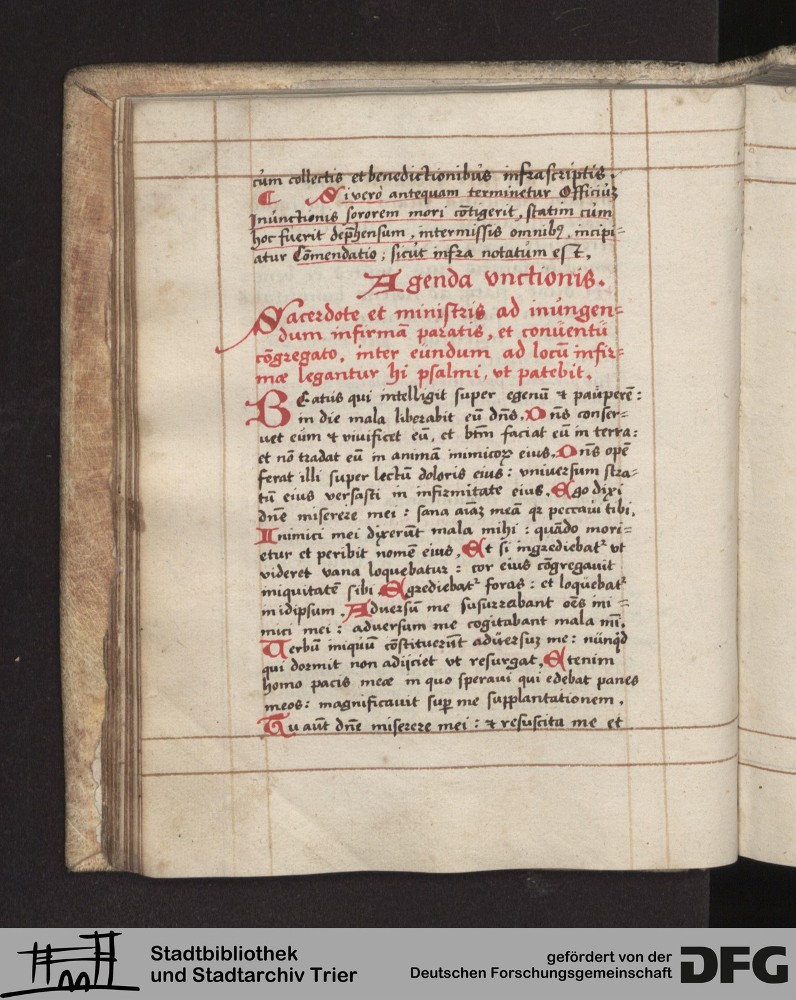 cùm collectis et benedictionibùs infrascriptis.
Si verò antequam terminetur Officiuʒ
Inùnctionis sororem mori cōtigerit, statim cùm
hoc fuerit dep̄hensum, intermissis omnibꝰ, incipi=
atur Cōmendatio; sicùt infra notatùm est.
Agenda vnctionis.
Sacerdote et ministris ad inùngen=
dum infirmā paratis, et conùentù
cōgregato, inter eùndum ad locū infir=
mæ legantur hi psalmi, vt patebit.
BEatùs qui intelligit super egenū ⁊ paùperē:
in die mala liberabit eū dn̄s. Dn̄s conser=
uet eùm ⁊ viuificet eū, et btm̄ faciat eū in terra:
et nō tradat eū in animā inimicoꝝ eius. Dn̄s opē
ferat illi super lectū doloris eius: vniuersum stra=
tū eius versasti in infirmitate eius. Ego dixi
dn̄e miserere mei: sana aīaʒ meā qꝛ peccaui tibi.
Inimici mei dixerūt mala mihi: quādo mori=
etur et peribit nomē eius. Et si ingrediebatᷣ vt
videret vana loquebatur: cor eius cōgregauit
iniquitatē sibi Egrediebatᷣ foras: et loquebatᷣ
in idipsum. Aduersū me susurrabant oēs ini=
mici mei: aduersum me cogitabant mala mī.
Uerbū iniquū cōstituerūt adùersuʒ me: nùnqd̄
qui dormit non adijciet vt resurgat. Etenim
homo pacis meæ in quo speraui qui edebat panes
meos: magnificauit sup̄ me supplantationem.
Tu aūt dn̄e miserere mei: ⁊ resuscita me et
Stadtbibliothek
und Stadtarchiv Trier
gefördert von der
Deutschen Forschungsgemeinschaft
DFG